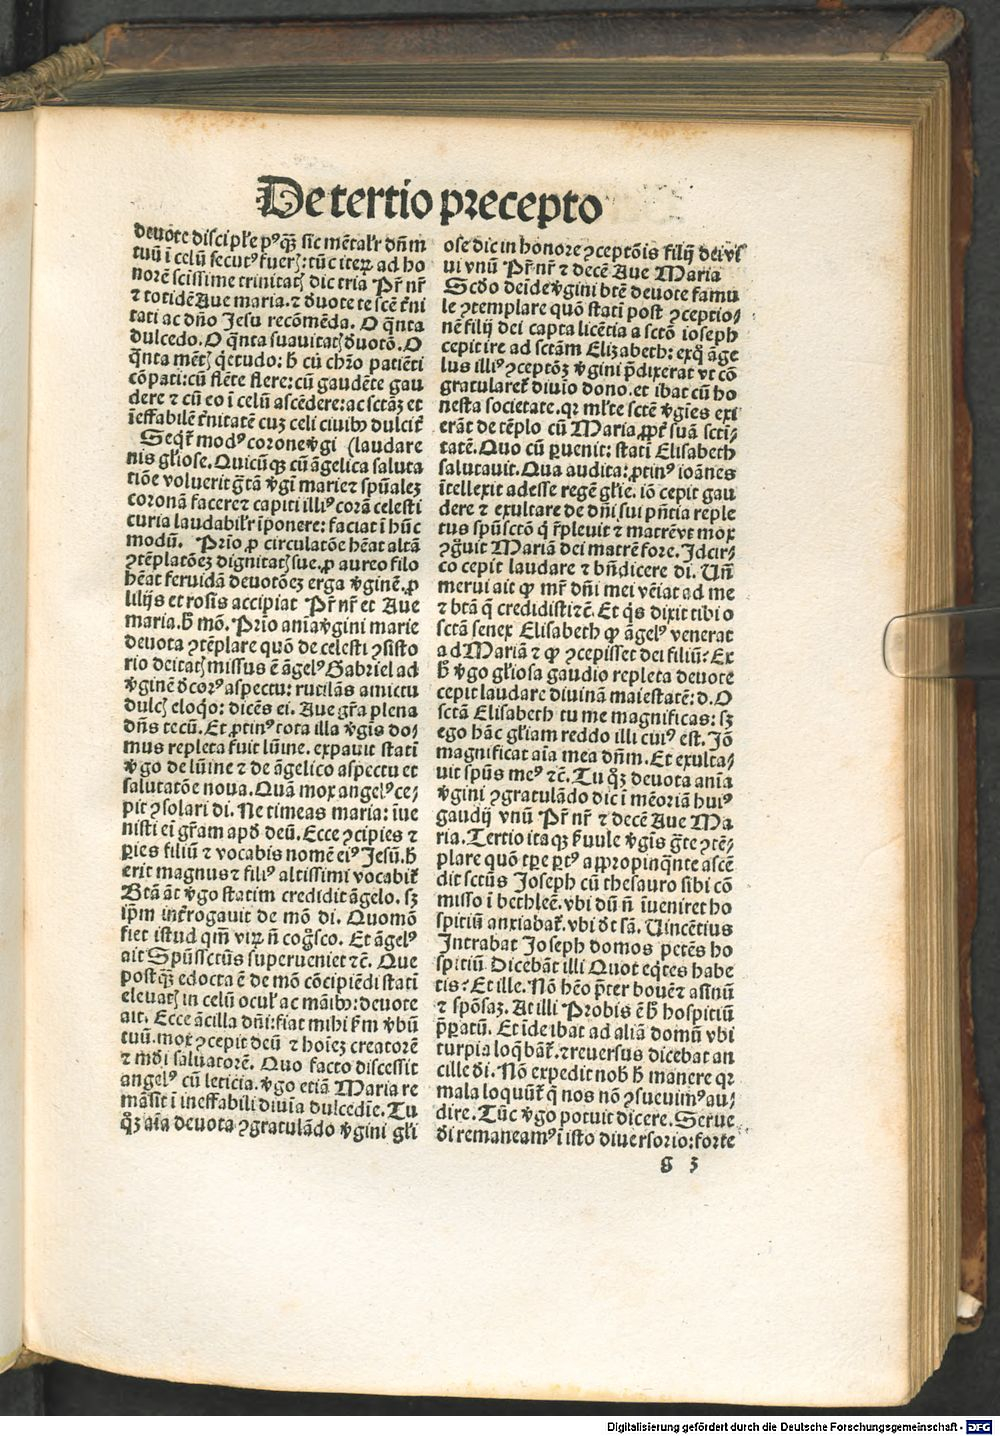 De tertio precepto
deuote disciple pꝰq̃ʒ sic mẽtalr̃ dñm
tuũ ĩ celũ secutꝰ fuerʒ: tũc iteꝝ ad ho
norẽ scissime trinitatʒ dic tria Pr̃ nr̃
⁊ totidẽ Aue maria. ⁊ d̃uote te scẽ tr̃ni
tati ac dño Jesu recõmẽda. O q̃nta
dulcedo. O q̃nta suauitatʒ d̃uotõ. O
q̃nta mẽtʒ q̃etudo: ꝥ cũ chr̃o patiẽti
cõpati: cũ flẽte flere: cũ gaudẽte gau
dere ⁊ cũ eo ĩ celũ ascẽdere: ac sctãʒ et
ĩeffabilẽ tr̃nitatẽ cuʒ celi ciuibꝰ dulcit̃
Seqt̃ modꝰ corone v̾gi (laudare
nis gl̃iose. Quicũqʒ cũ ãgelica saluta
tiõe voluerit gr̃tã v̾gĩ marie ⁊ spũaleʒ
coronã facere ⁊ capiti illiꝰ corã celesti
curia laudabilr̃ ĩponere: faciat ĩ hũc
modũ. Prĩo ꝓ circulatõe hẽat altã
ꝯtẽplatõeʒ dignitatʒ sue. ꝓ aureo filo
hẽat feruidã deuotõeʒ erga v̾ginẽ. ꝓ
lilijs et rosis accipiat Pr̃ nr̃ et Aue
maria. ꝥ mõ. Prĩo aĩa v̾gini marie
deuota ꝯtẽplare quõ de celesti ꝯsisto
rio deitatʒ missus ẽ ãgelꝰ Gabriel ad
v̾ginẽ d̃corꝰ aspectu: rutilãs amictu
dulcʒ eloq̃o: dicẽs ei. Aue gr̃a plena
dñs tecũ. Et ꝓtinꝰ tota illa v̾gis do⸗
mus repleta fuit lũine. expauit statĩ
v̾go de lũine ⁊ de ãgelico aspectu et
salutatõe noua. Quã mox angelꝰ ce⸗
pit ꝯsolari di. Ne timeas maria: ĩue
nisti eĩ gr̃am apd̃ deũ. Ecce ꝯcipies ⁊
ꝑies filiũ ⁊ vocabis nomẽ eiꝰ Jesũ. ꝥ
erit magnus ⁊ filiꝰ altissimi vocabit̃
Btã ãt v̾go statim credidit ãgelo. sʒ
ip̃m inr̃rogauit de mõ di. Quomõ
fiet istud qm̃ viꝝ ñ cog̃sco. Et ãgelꝰ
ait Spũssctũs superueniet ⁊c̃. Que
postqʒ̃ edocta ẽ de mõ cõcipiẽdi statĩ
eleuatʒ in celũ oculꝭ ac mãibꝰ: deuote
ait. Ecce ãcilla dñi: fiat mihi ẜm v̾bũ
tuũ. mox ꝯcepit deũ ⁊ hoĩeʒ creatorẽ
⁊ mũdi saluatorẽ. Quo facto discessit
angelꝰ cũ leticia. v̾go etiã Maria re
mãsit ĩ ineffabili diuĩa dulcedĩe. Tu
q̃ʒ aĩa deuota ꝯgratulãdo v̾gini gl̃i
ose dic in honorẽ ꝯceptõis filij dei
vnũ Pr̃ nr̃ ⁊ decẽ Aue Maria
Scd̃o deĩde v̾gini btẽ deuote famu
le ꝯtemplare quõ statĩ post ꝯceptio⸗
nẽ filij dei capta licẽtia a sctõ ioseph
cepit ire ad sctãm Elizabeth: ex q̃ ãge
lus illiꝰ ꝯceptõʒ v̾gini p̃dixerat vt cõ
gratularet̃ diuĩo dono. et ibat cũ ho
nesta societate. qꝛ ml̃te sctẽ v̾gies exi
erãt de tẽplo cũ Maria ꝓpt̃ suã scti⸗
tatẽ. Quo cũ ꝑuenit: statĩ Elisabeth
salutauit. Qua audita: ꝓtinꝰ ioãnes
ĩtellexit adesse regẽ gl̃ie. iõ cepit gau
dere ⁊ exultare de dñi sui pñtia reple
tus spũsctõ q̃ r̃pleuit ⁊ matrẽ vt mox
ꝯg̃uit Mariã dei matrẽ fore. Idcir⸗
co cepit laudare ⁊ bñdicere di. Uñ
merui ait ꝙ mr̃ dñi mei vẽiat ad me
⁊ btã q̃ credidisti ⁊c̃. Et q̃s dixit tibi o
sctã senex Elisabeth ꝙ ãgelꝰ venerat
ad Mariã ⁊ ꝙ ꝯcepisset dei filiũ? Ex
ꝥ v̾go gl̃iosa gaudio repleta deuote
cepit laudare diuinã maiestatẽ: d. O
sctã Elisabeth tu me magnificas: sʒ
ego hãc gl̃iam reddo illi cuiꝰ est. Jõ
magnificat aĩa mea dñm. Et exulta⸗
uit spũs meꝰ ⁊c̃. Tu q̃ʒ deuota anĩa
v̾gini ꝯgratulãdo dic ĩ mẽoriã huiꝰ
gaudij vnũ Pr̃ nr̃ ⁊ decẽ Aue Ma
ria. Tertio itaqʒ ẜuule v̾gis gr̃te ꝯtẽ⸗
plare quõ tꝑe ꝑtꝰ appropinq̃nte ascẽ
dit sctũs Joseph cũ thesauro sibi cõ
misso ĩ bethleẽ. vbi dũ ñ ĩueniret ho
spitiũ anxiabat̃. vbi d̃t sã. Uincẽtius
Intrabat Joseph domos petẽs ho
spitiũ Dicebãt illi Quot eq̃tes habe
tis? Et ille. Nõ hẽo p̃ter bouẽ ⁊ asinũ
⁊ spõsaʒ. At illi Probis ẽ ꝥ hospitiũ
p̃ꝑatũ. Et ĩde ibat ad aliã domũ vbi
turpia loq̃bãt̃. ⁊ reuersus dicebat an
cille dĩ. Nõ expedit nob̃ ꝥ manere qꝛ
mala loquũt̃ q̃ nos nõ ꝯsueuimꝰ au⸗
dire. Tũc v̾go potuit dicere. Serue
di remaneamꝰ ĩ isto diuersorio: forte
g 3
Digitalisierung gefördert durch die Deutsche Forschungsgemeinschaft - DFG